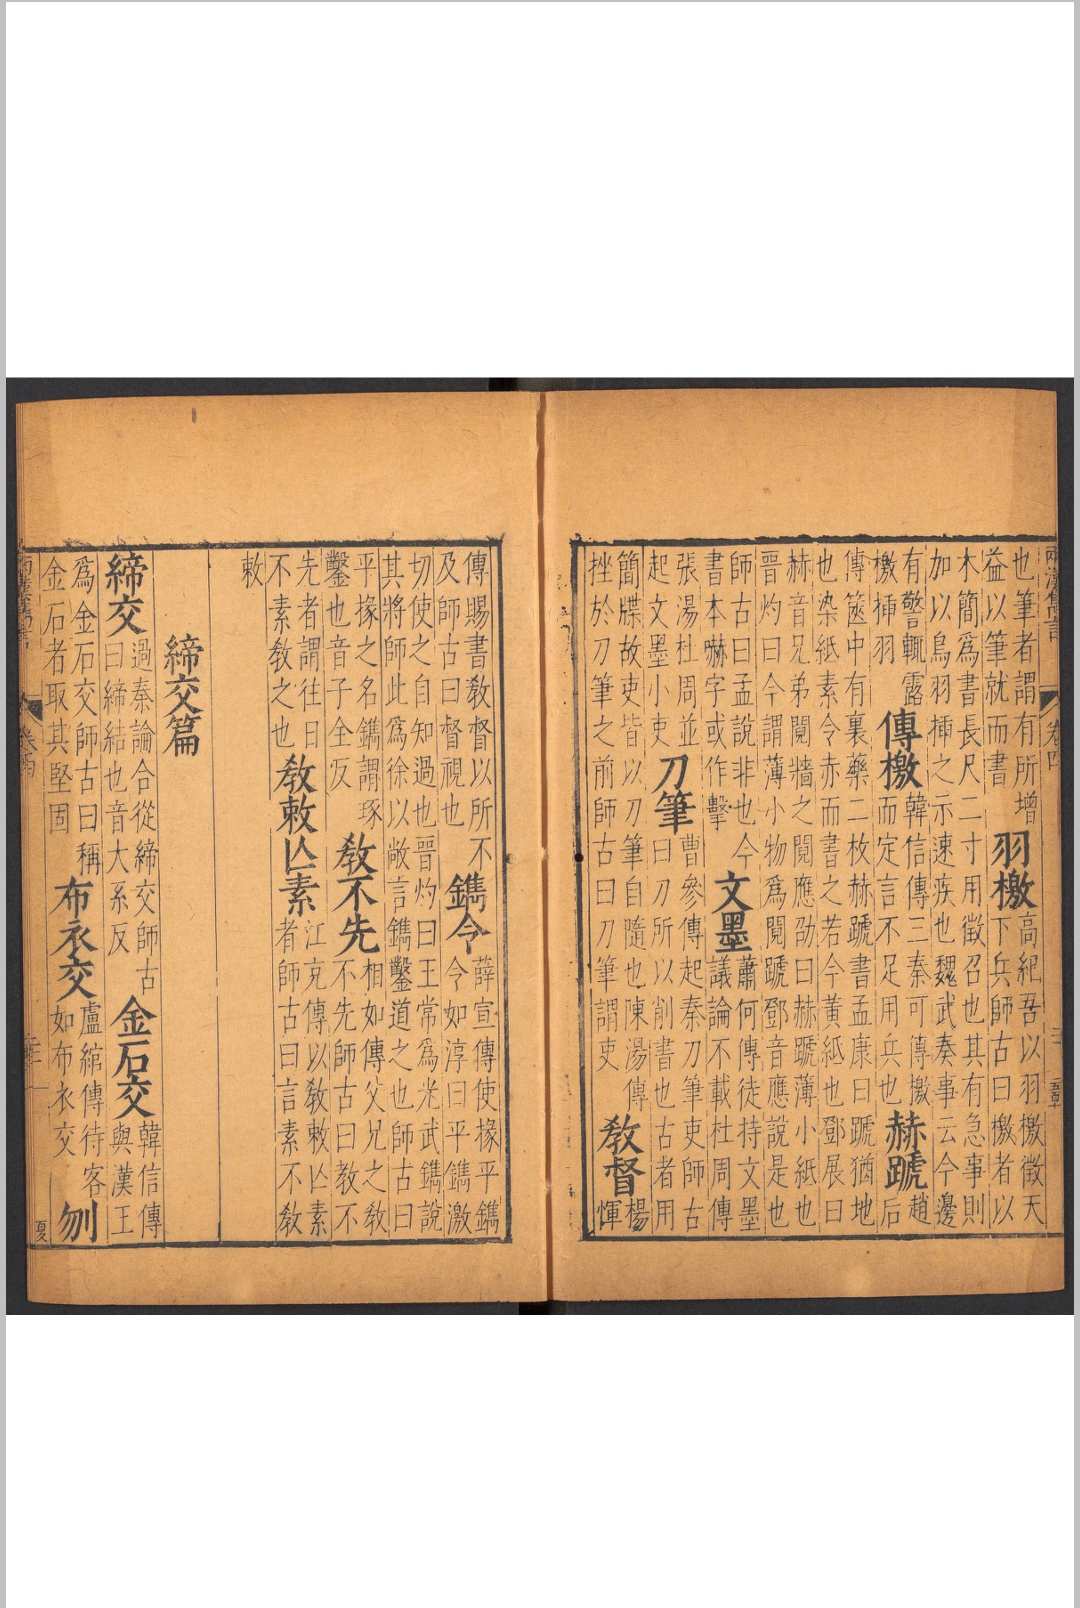 兩漢雋言
卷四
也筆者謂有所增
益以筆就而書
羽檄
高紀吾以羽檄徵天
下兵師古曰檄者以
木簡爲書長尺二寸用徵召也其有急事則
加以鳥羽插之示速疾也魏武奏事云今邊
有警輒露
檄插羽
傳檄
韓信傳三秦可傳檄
而定言不足用兵也
赫蹏
趙
后
傳篋中有裹藥二枚赫蹏書孟康曰蹏猶地
也染紙素令赤而書之若今黃紙也鄧展曰
赫音兄弟鬩牆之鬩應劭曰赫蹏薄小紙也
晉灼曰今謂薄小物爲鬩蹏鄧音應說是也
師古曰孟說非也今
書本嚇字或作擊
文墨
蕭何傳徒持文墨
議論不載杜周傳
張湯杜周並
起文墨小吏
刀筆
曹參傳起秦刀筆吏師古
曰刀所以削書也古者用
簡牒故吏皆以刀筆自隨也陳湯傳
挫於刀筆之前師古曰刀筆謂吏
敎督
楊
惲
傳賜書敎督以所不
及師古曰督視也
鐫令
薛宣傳使掾平鐫
令如淳曰平鐫激
切使之自知過也晉灼曰王常爲光武鐫說
其將師此爲徐以敞言鐫鑿道之也師古曰
平掾之名鐫謂琢
鑿也音子全反
敎不先
相如傳父兄之敎
不先師古曰教不
先者謂往日
不素敎之也
敎敕亾素
江充傳以敎敕亾素
者師古曰言素不敎
敕
締交篇
締交
過秦論合從締交師古
曰締結也音大系反
金石交
韓信傳
與漢王
爲金石交師古曰稱
金石者取其堅固
布衣交
盧綰傳待客
如布衣交
刎